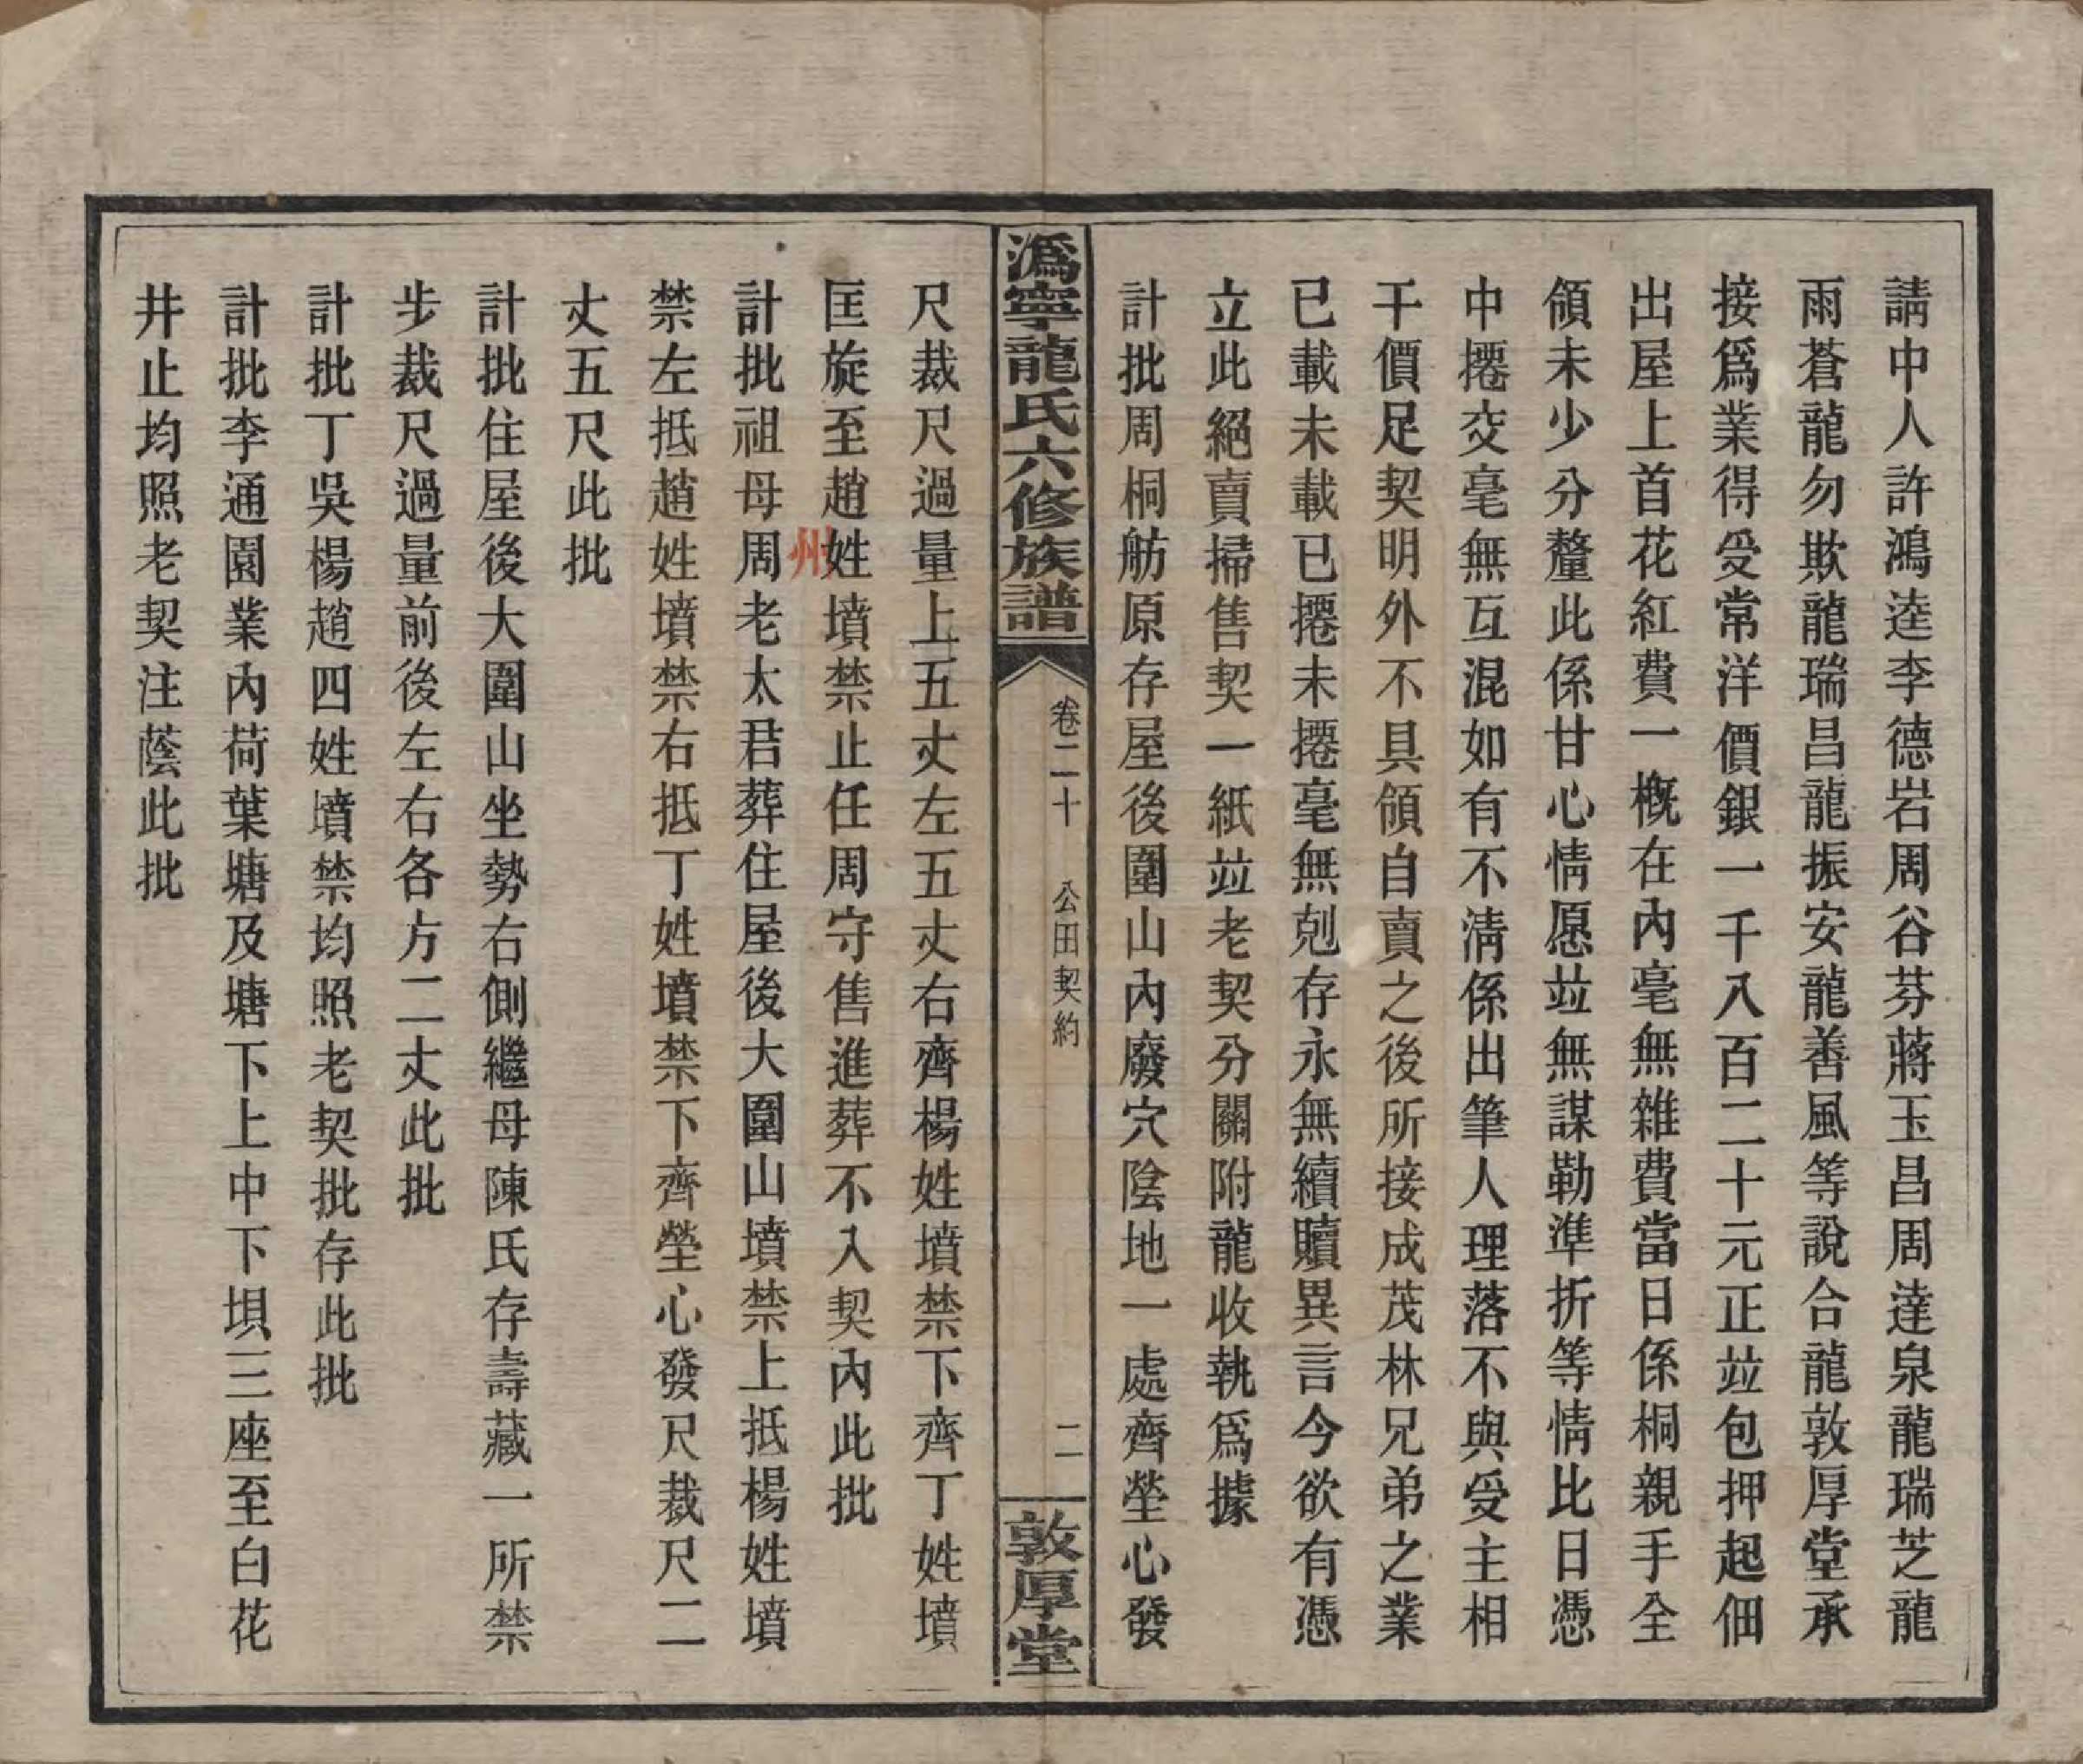 請中人許鴻逵李德岩周谷芬蔣玉昌周達泉龍瑞芝龍
雨蒼龍勿欺龍瑞昌龍振安龍善風等說合龍敦厚堂承
接爲業得受常洋價銀一千八百二十元正竝包押起佃
出屋上首花紅費一概在內毫無雜費當日係桐親手全
領未少分釐此係甘心情愿竝無謀勒準折等情比日憑
中擡交毫無互混如有不淸係出筆人理落不與受主相
干價足契明外不具領自賣之後所接成茂林兄弟之業
已載未載已擡未擡毫無剋存永無續贖異言今欲有憑
立此絕賣掃售契一紙竝老契分關附龍收執爲據
計批周桐舫原存屋後圍山內廢穴陰地一處齊塋心發
潙寧龍氏六修族譜
卷二十 公田契約
二
敦厚堂
尺裁尺過量上五丈左五丈右齊楊姓墳禁下齊丁姓墳
匡旋至趙姓墳禁止任周守售進葬不入契內此批
州
計批祖母周老太君葬住屋後大圍山墳禁上抵楊姓墳
禁左抵趙姓墳禁右抵丁姓墳禁下齊塋心發尺裁尺二
丈五尺此批
計批住屋後大圍山坐勢右側繼母陳氏存壽藏一所禁
步裁尺過量前後左右各方二丈此批
計批丁吳楊趙四姓墳禁均照老契批存此批
計批李通園業內荷葉塘及塘下上中下垻三座至白花
井止均照老契注蔭此批